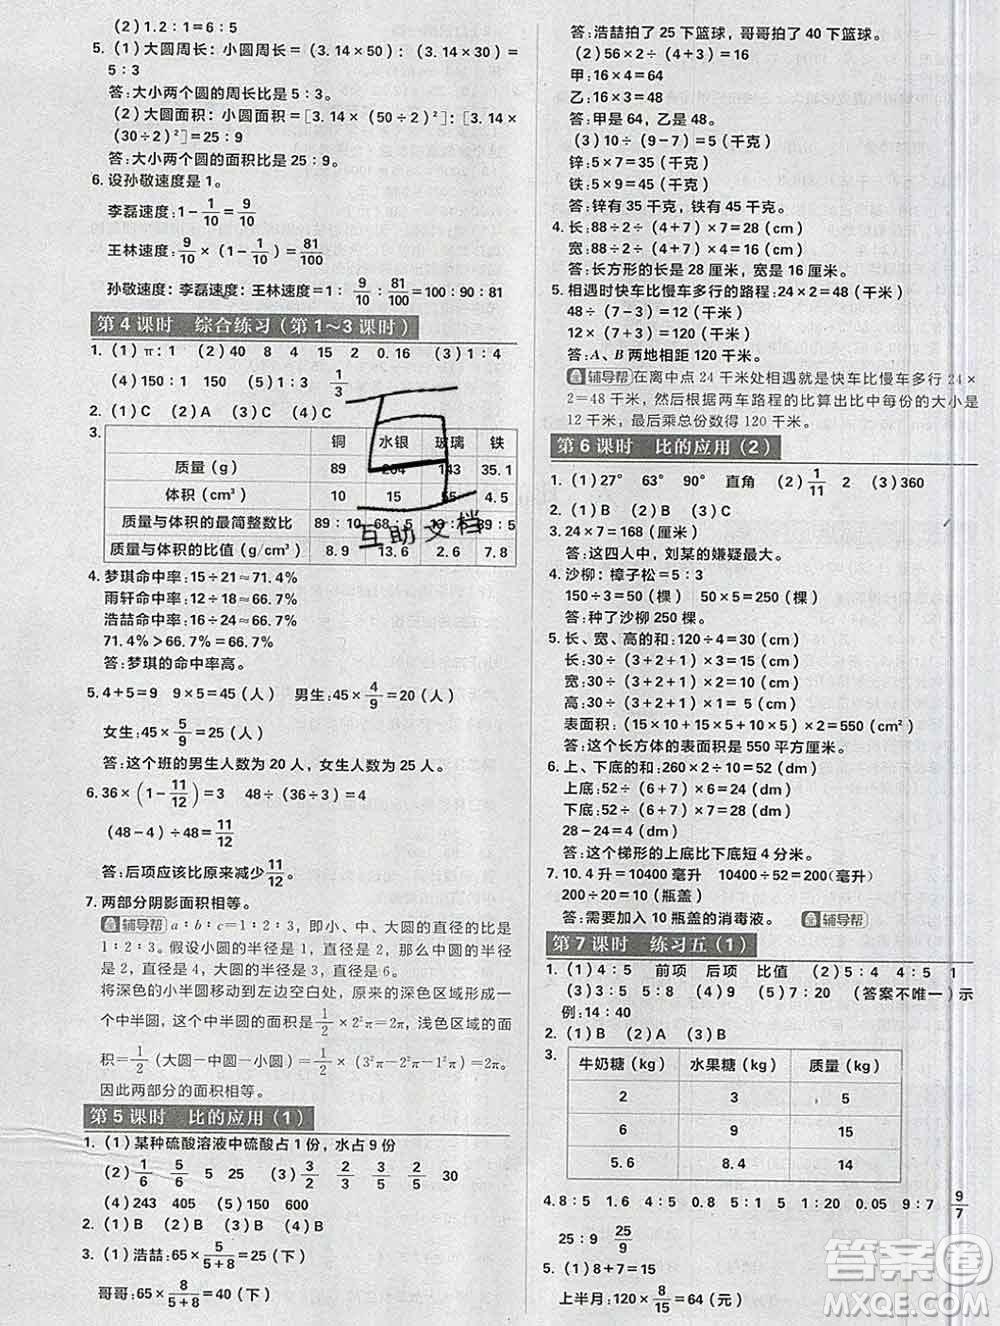 (2)1.2:1=6:5
5.(1)大圆周长:小圆周长=(3.14×50):(3.14×30)=
5:3
答:大小两个圆的周长比是5:3。
(2)大圆面积:小圆面积=[3.14×(50÷2)²]:[3.14×
(30÷2)²]=25:9
答:大小两个圆的面积比是25:9。
6.设孙敬速度是1。
李磊速度:1-1/10=9/10
王林速度:9/10×(1-1/10)=81/100
孙敬速度:李磊速度:王林速度=1:9/10:81/100=100:90:81
第4课时 综合练习(第1~3课时)
1.(1)π:1 (2)40 8 4 15 2 0.16 (3)1:4
(4)150:1 150 (5)1:3 1/3
2.(1)C (2)A (3)C
3.
铜 水银 玻璃 铁
质量(g) 89 204 143 35.1
体积(cm³) 10 15 55 4.5
质量与体积的最简整数比 89:10 68:5 89:5
质量与体积的比值(g/cm³) 8.9 13.6 2.6 7.8
互助文档
4.梦琪命中率:15÷21≈71.4%
雨轩命中率:12÷18≈66.7%
浩喆命中率:16÷24≈66.7%
71.4%>66.7%=66.7%
答:梦琪的命中率高。
5.4+5=9 9×5=45(人) 男生:45×4/9=20(人)
女生:45×5/9=25(人)
答:这个班的男生人数为20人,女生人数为25人。
6.36×(1-11/12)=3 48÷(36÷3)=4
(48-4)÷48=11/12
答:后项应该比原来减少11/12。
7.两部分阴影面积相等。
辅导帮 a:b:c=1:2:3,即小、中、大圆的直径的比是
1:2:3。假设小圆的半径是1,直径是2,那么中圆的半径
是2,直径是4,大圆的半径是3,直径是6。
将深色的小半圆移动到左边空白处,原来的深色区域形成了
一个中半圆,这个中半圆的面积是1/2×2²π=2π,浅色区域的面
积=1/2(大圆-中圆-小圆)=1/2×(3²π-2²π-1²π)=2π。
因此两部分的面积相等。
第5课时 比的应用(1)
1.(1)某种硫酸溶液中硫酸占1份,水占9份
(2)1/6 5/6 5 25 (3)3/2 2/3 2/5 30
(4)243 405 (5)150 600
2.(1)B (2)C (3)B (4)B
3.(1)浩喆:65×5/(5+8)=25(下)
哥哥:65×8/(5+8)=40(下)
答:浩喆拍了25下篮球,哥哥拍了40下篮球。
(2)56×2÷(4+3)=16
甲:16×4=64
乙:16×3=48
答:甲是64,乙是48。
(3)10÷(9-7)=5(千克)
锌:5×7=35(千克)
铁:5×9=45(千克)
答:锌有35千克,铁有45千克。
4.长:88÷2÷(4+7)×7=28(cm)
宽:88÷2÷(4+7)×4=16(cm)
答:长方形的长是28厘米,宽是16厘米。
5.相遇时快车比慢车多行的路程:24×2=48(千米)
48÷(7-3)=12(千米)
12×(7+3)=120(千米)
答:A、B两地相距120千米。
辅导帮 在离中点24千米处相遇就是快车比慢车多行24×
2=48(千米),然后根据两车路程的比算出比中每份的大小是
12千米,最后乘总份数得120千米。
第6课时 比的应用(2)
1.(1)27° 63° 90° 直角 (2)1/11 2 (3)360
2.(1)B (2)B (3)C
3.24×7=168(厘米)
答:这四人中,刘某的嫌疑最大。
4.沙柳:樟子松=5:3
150÷3=50(棵) 50×5=250(棵)
答:种了沙柳250棵。
5.长、宽、高的和:120÷4=30(cm)
长:30÷(3+2+1)×3=15(cm)
宽:30÷(3+2+1)×2=10(cm)
高:30÷(3+2+1)×1=5(cm)
表面积:(15×10+15×5+10×5)×2=550(cm²)
答:这个长方体的表面积是550平方厘米。
6.上、下底的和:260×2÷10=52(dm)
上底:52÷(6+7)×6=24(dm)
下底:52÷(6+7)×7=28(dm)
28-24=4(dm)
答:这个梯形的上底比下底短4分米。
7.10.4升=10400毫升 10400÷52=200(毫升)
200÷20=10(瓶盖)
答:需要加入10瓶盖的消毒液。 辅导帮
第7课时 练习五(1)
1.(1)4:5 前项 后项 比值 (2)5 4 5 1
(3)3:5 5:8 (4)9 (5)7:20 (答案不唯一)示
例:14:40
2.(1)B (2)A (3)B
3.
牛奶糖(kg) 水果糖(kg) 质量(kg)
2 3 5
6 9 15
5.6 8.4 14
4.8:5 1.6 4:5 0.8 5:1 5 1:20 0.05 9:7 9/7
25:9 25/9
5.(1)8+7=15
上半月:120×8/15=64(元)
答案圈
MXQE.COM